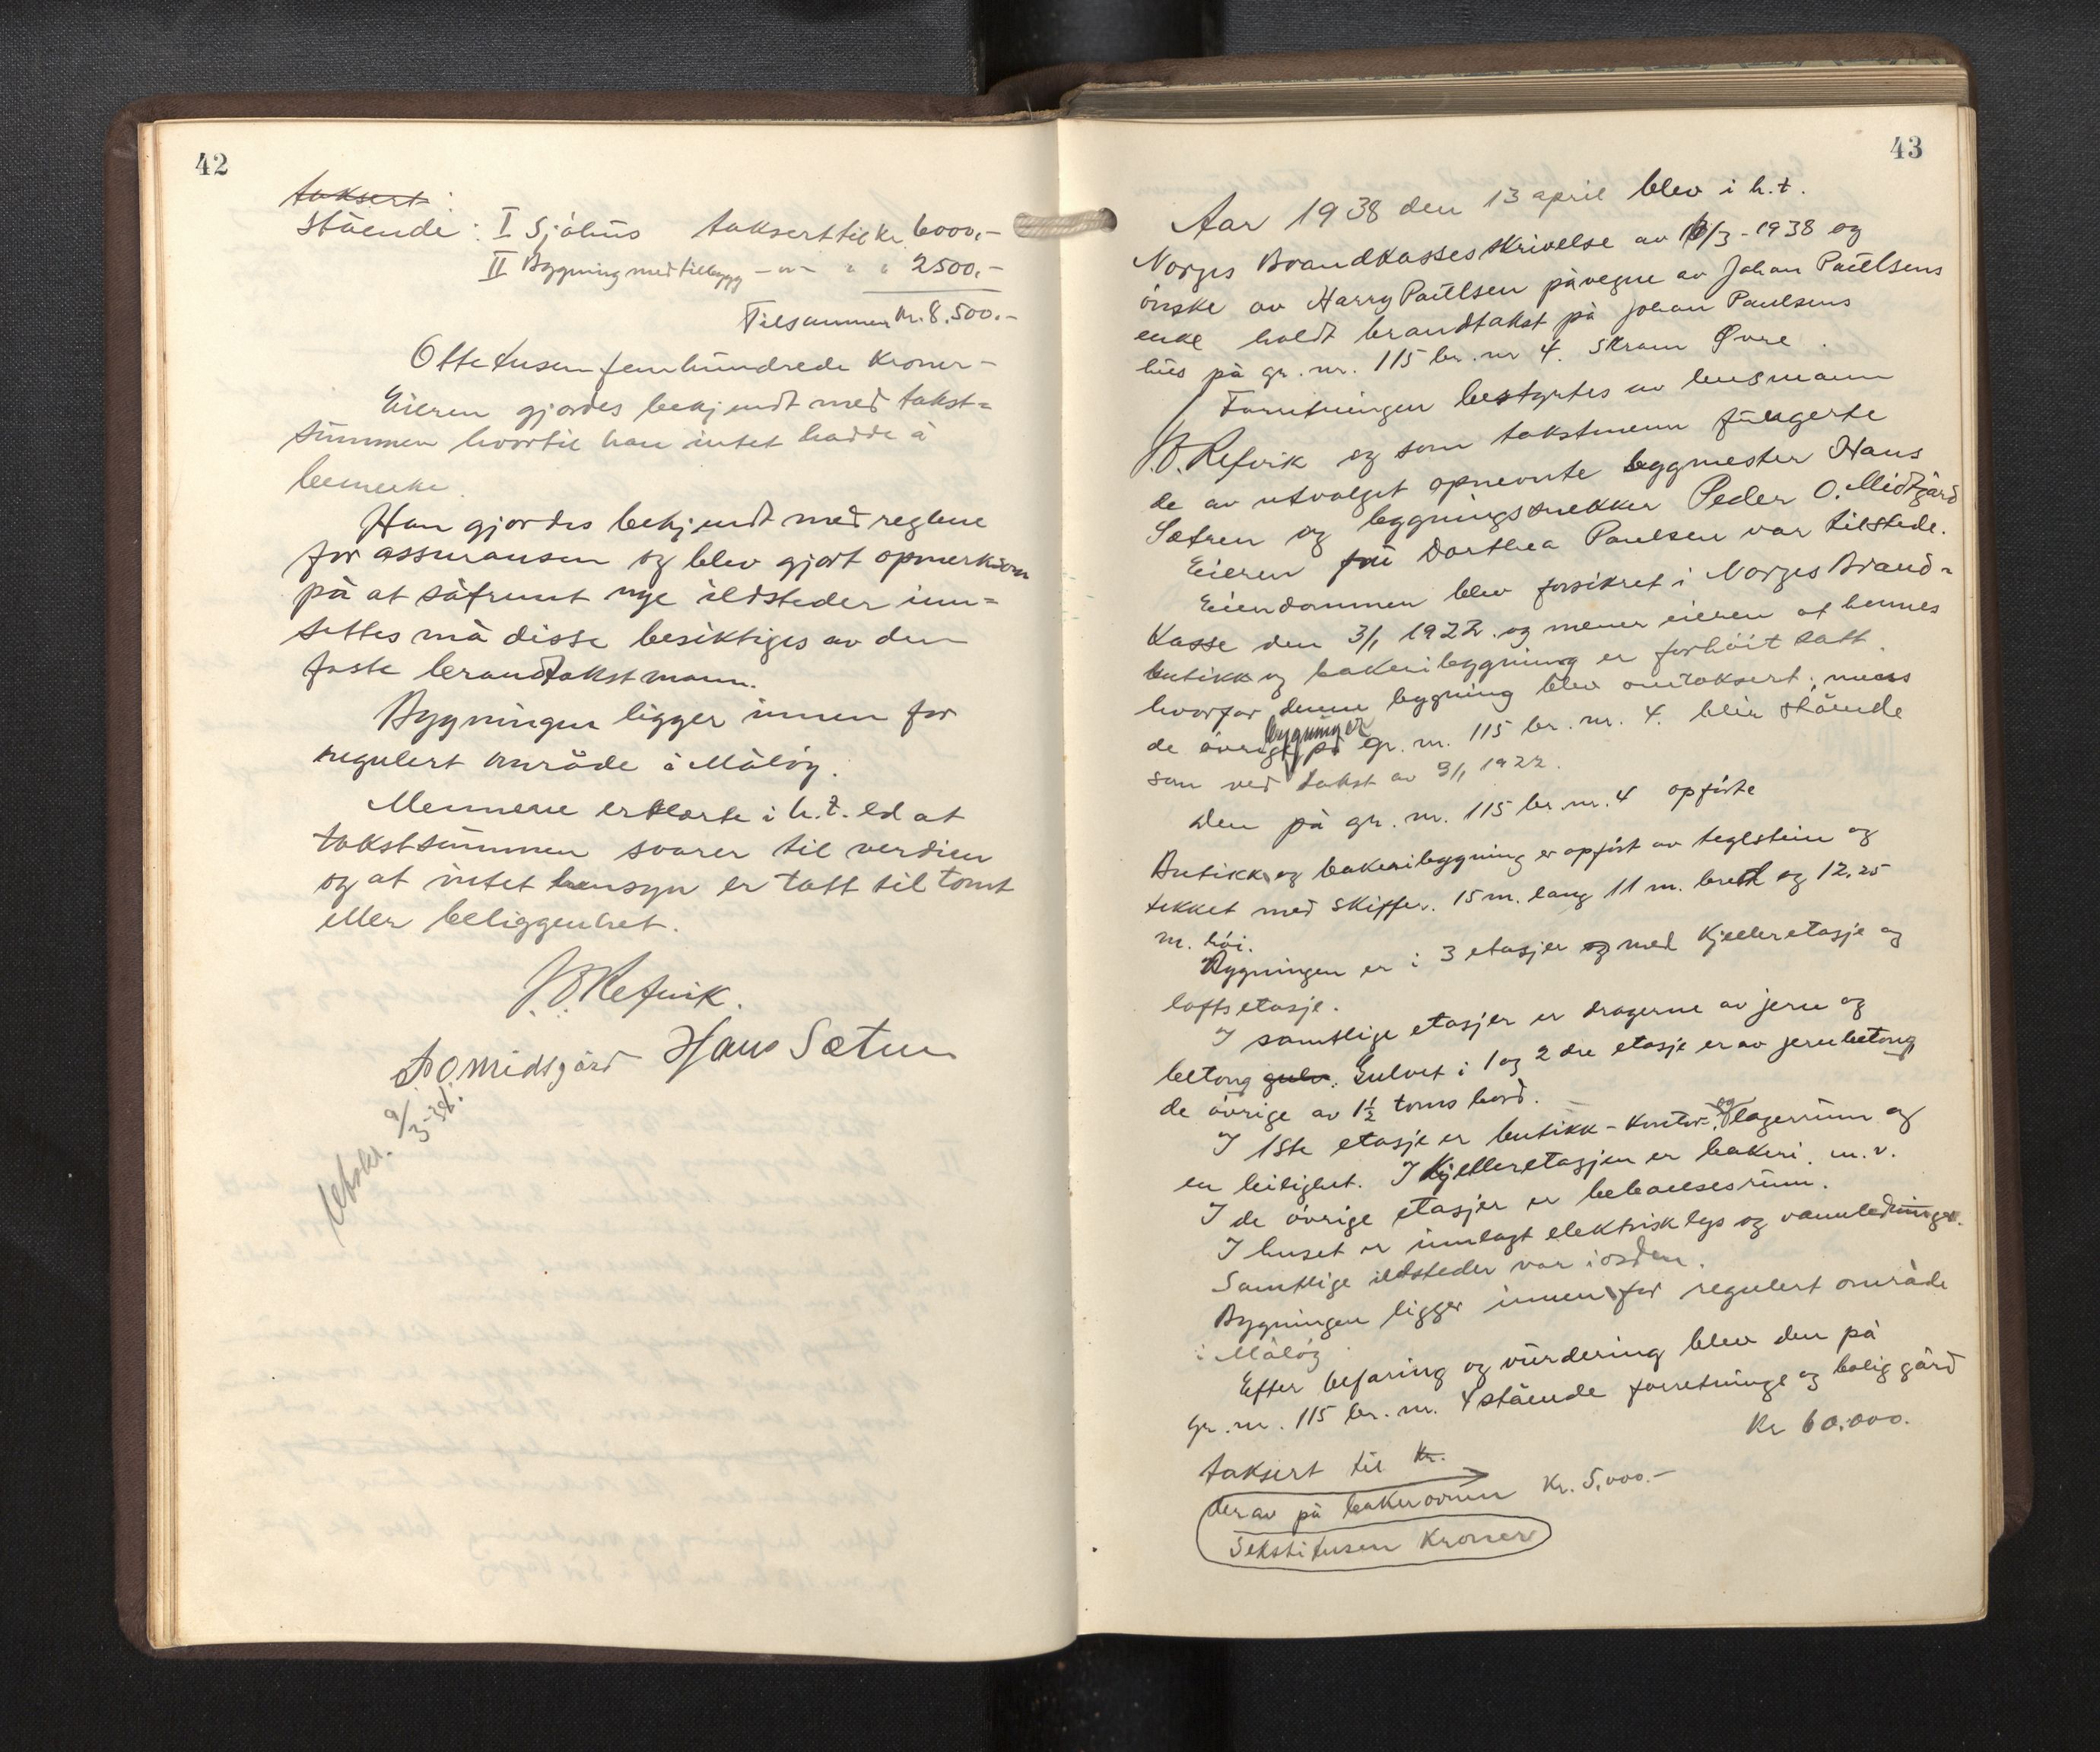 42
taksert
stående: I Sjöhus taksert til kr. 6000,-
II Bygning med tilbygg -"- " " 2500.-
Tilsammen kr. 8.500.-
Ottetusen femhundrede Kroner-
Eieren gjordes bekjendt med takst=
summen hvortil han intet hadde å
bemerke.
Han gjordes bekjendt med reglene
for assuransen og blev gjort opmerksom
på at såfremt nye ildsteder inn=
settes må disse besiktiges av den
faste brandtakstmann.
Bygningen ligger innen for
regulert område i Målöy.
Mennene erklærte i h.t. ed at
takstsummen svarer til verdien
og at intet hensyn er tatt til tomt
eller beliggenhet.
Refvik.
P. O. Midtgård Hans Sætren
Utskr. 9/3-38.
43
Aar 1938 den 13 april blev i h.t.
Norges Brandkasses skrivelse av 16/3-1938 og
önske av Harry Paulsen på vegne av Johan Paulsens
enke holdt brandtakst på Johan Paulsens
hus på gr. nr. 115 br. nr 4. Skram Øvre.
Forretningen bestyrtes av lensmann
Refvik og som takstmenn fungerte
de av utvalget opnevnte byggmester Hans
Sætren og bygningssnekker Peder O. Midtgård
Eieren fru Dorthea Paulsen var tilstede.
Eiendommen blev forsikret i Norges Brand=
kasse den 3/1 1922. og mener eieren at hennes
butikk og bakeribygning er forhöit satt.
hvorfor denne bygning blev omtaksert, mens
de övrige bygninger på gr. nr. 115 br. nr. 4. blir stående
som ved takst av 3/1 1922.
Den på gr. nr. 115 br. nr. 4 opförte
Butikk og bakeribygning er opfört av teglstein og
tekket med skiffer. 15 m. lang 11 m. bred og 12,25
m. höi.
Bygningen er i 3 etasjer og med Kjelleretasje og
loftsetasje.
I samtlige etasjer er dragerne av jern og
betong gulv. Gulvet i 1 og 2dre etasje er av jernbetong
de övrige av 1½ toms bord.
I 1ste etasje er butikk-kontor- og lagerrum og
en leilighet. I Kjelleretasjen er bakeri. m.v.
I de övrige etasjer er beboelsesrum.
I huset er innlagt elektrisk lys og vannledninger.
Samtlige ildsteder var i orden.
Bygningen ligger innen for regulert område
i Målöy
Efter befaring og vurdering blev den på
gr. nr. 115 br. nr. 4 stående forretnings og boliggård
taksert til kr. Kr 60.000.
derav på bakerovnen Kr. 5,000.-
Sekstitusen Kroner